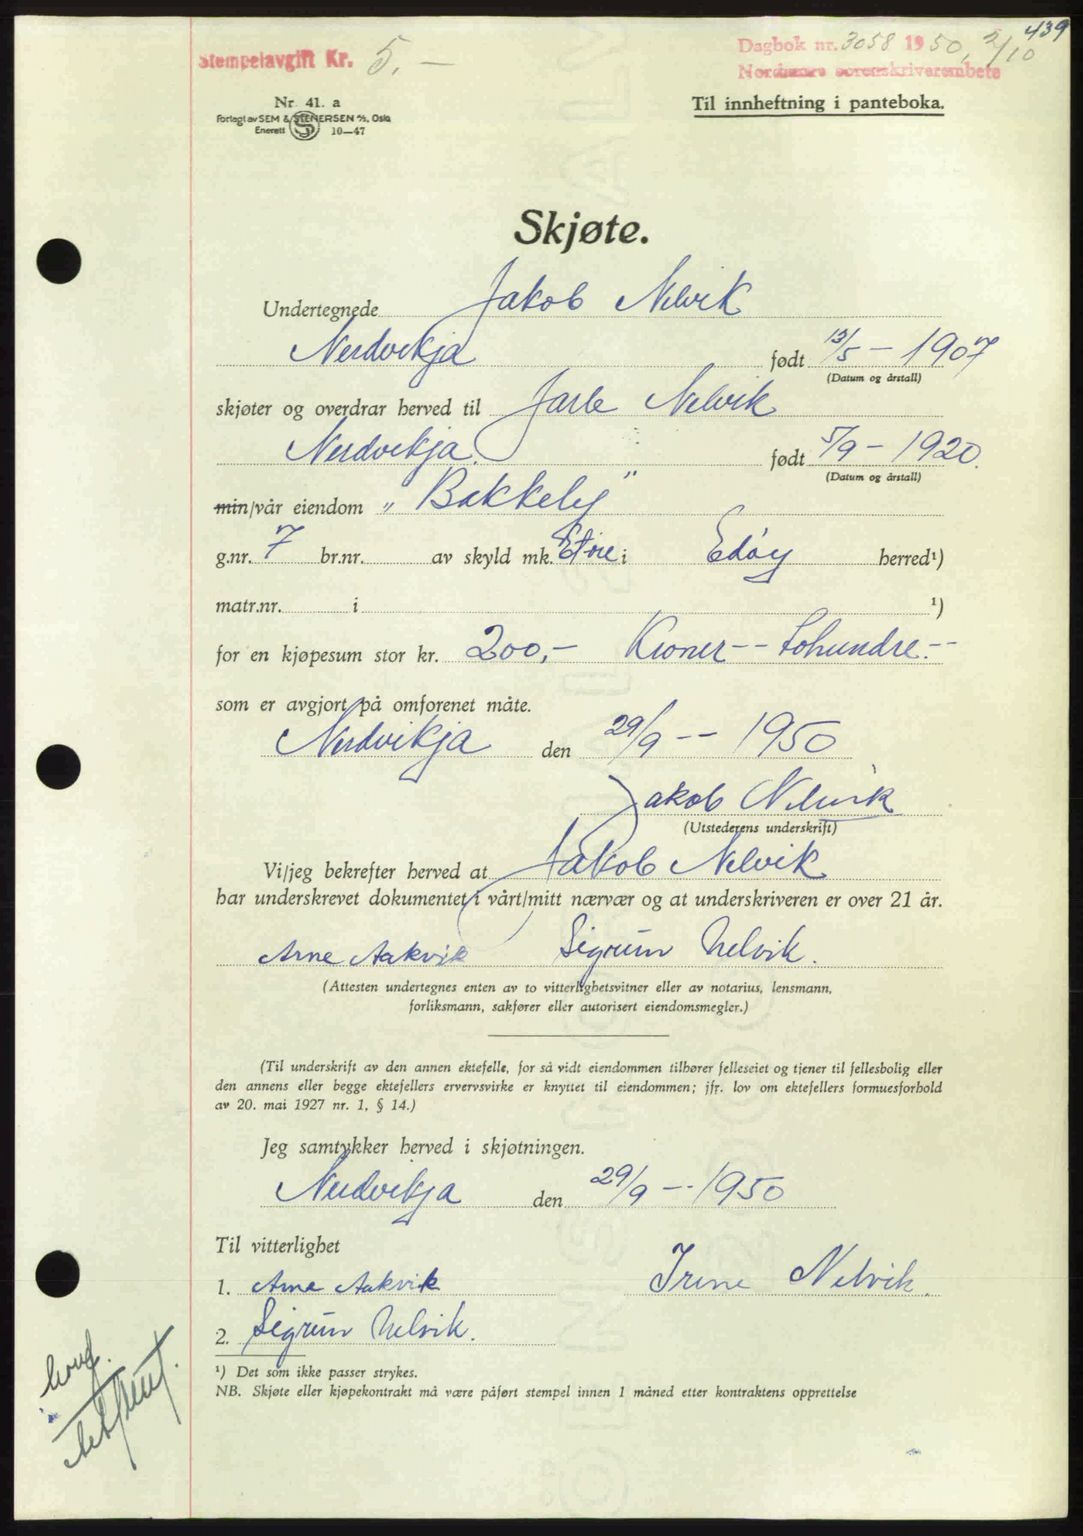 439
Stempelavgift Kr. 5,-
Dagbok nr. 3058 1950, 2/10
Nordmøre sorenskriverembete
Nr. 41. a
Forlagt av SEM & STENERSEN A/S, Oslo
Enerett S 10—47
Til innheftning i panteboka.
Skjøte.
Undertegnede Jakob Nelvik
Nerdvikja født 13/5 - 1907
(Datum og årstall)
skjøter og overdrar herved til Jarle Nelvik
Nerdvikja. født 5/9 - 1920.
(Datum og årstall)
min/vår eiendom „Bakkely"
g.nr. 7 br.nr. av skyld mk. i Edøy herred¹)
matr.nr. i ¹)
for en kjøpesum stor kr. 200,- Kroner -- Tohundre. --
som er avgjort på omforenet måte.
Nerdvikja den 29/9 -- 1950
Jakob Nelvik
(Utstederens underskrift)
Vi/jeg bekrefter herved at Jakob Nelvik
har underskrevet dokumentet i vårt/mitt nærvær og at underskriveren er over 21 år.
Arne Aakvik Sigrun Nelvik.
(Attesten undertegnes enten av to vitterlighetsvitner eller av notarius, lensmann,
forliksmann, sakfører eller autorisert eiendomsmegler.)
(Til underskrift av den annen ektefelle, for så vidt eiendommen tilhører felleseiet og tjener til fellesbolig eller
den annens eller begge ektefellers ervervsvirke er knyttet til eiendommen; jfr. lov om ektefellers formuesforhold
av 20. mai 1927 nr. 1, § 14.)
Jeg samtykker herved i skjøtningen.
Nerdvikja den 29/9 -- 1950
Til vitterlighet
1. Arne Aakvik Irene Nelvik.
2. Sigrun Nelvik.
¹) Det som ikke passer strykes.
NB. Skjøte eller kjøpekontrakt må være påført stempel innen 1 måned etter kontraktens opprettelse